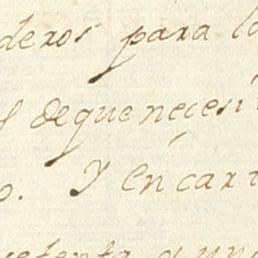 deros para la
de que necesi
o. Y en cart
setenta y un